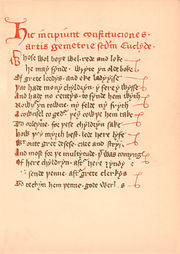 Hic incipiunt constituciones
artis gemetrie secdm Euclyde.
Whose wol boþe wel rede and loke
He may fynde wryte yn olde boke
Of grete lordys and eke ladyysse
Þat hade mony chyldryn y fere ywysse
And hade no rentys to fynde hem wyth
Nowþer yn towne ny felde ny fryth
A cownsel togeder þey cowþe hem take
To ordeyne for þese chyldryn sake
How þey myȝth best lede here lyfe
Wt oute gret desese care and stryf
And most for þe multytude þt was comyng
Of here chyldryn
sende þenne aftr grete clerkys
To techyn hem þenne gode werkys